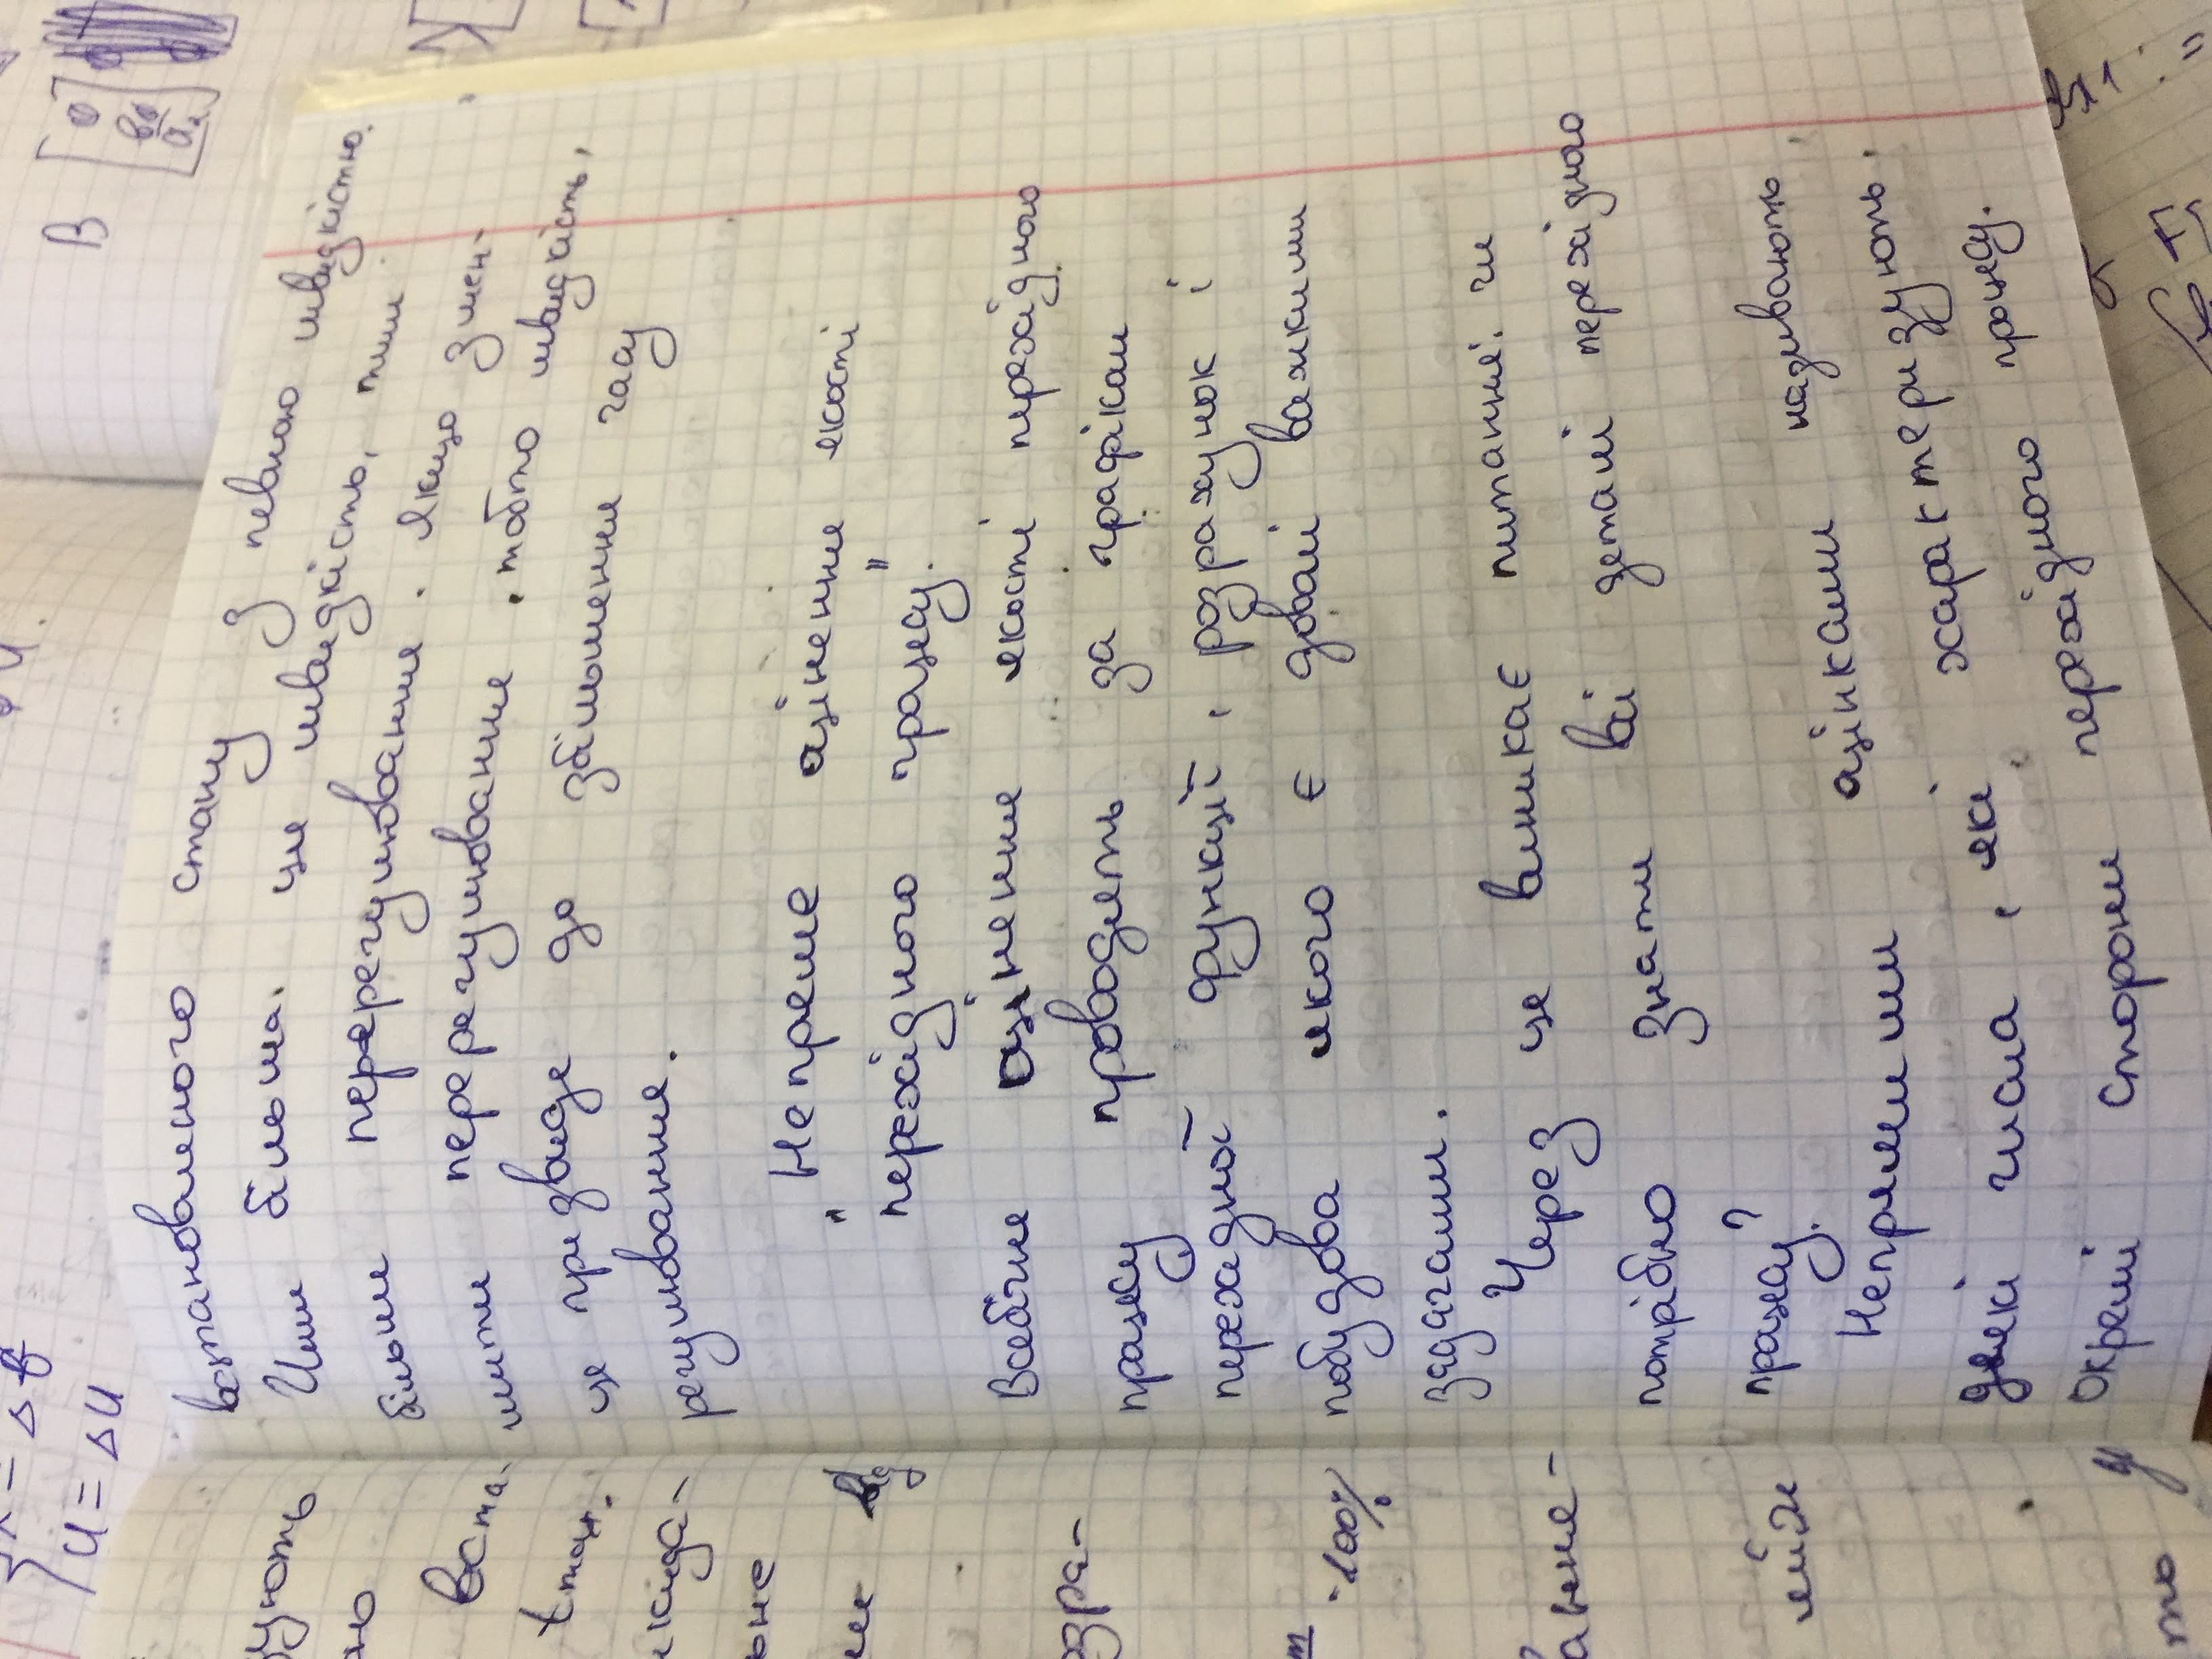 U = ΔU
B
0
встановленого стану з певною швидкістю.
Чим більша. ця швидкість, тим
більше перерегулювання. Якщо змен-
шити перерегулювання, тобто швидкість,
це призведе до збільшення часу
регулювання.
"Непряме оцінення якості
перехідного процесу."
Всебічне оцінення якості перехідного
процесу проводять за графіком
перехідної функції, розрахунок і
побудова якого є доволі важкими
задачами.
Через це виникає питання: чи
потрібно знати всі деталі перехідного
процесу?
Непрямими оцінками називають
деякі числа, які характеризують
окремі сторони перехідного процесу.
вста-
t max.
100%